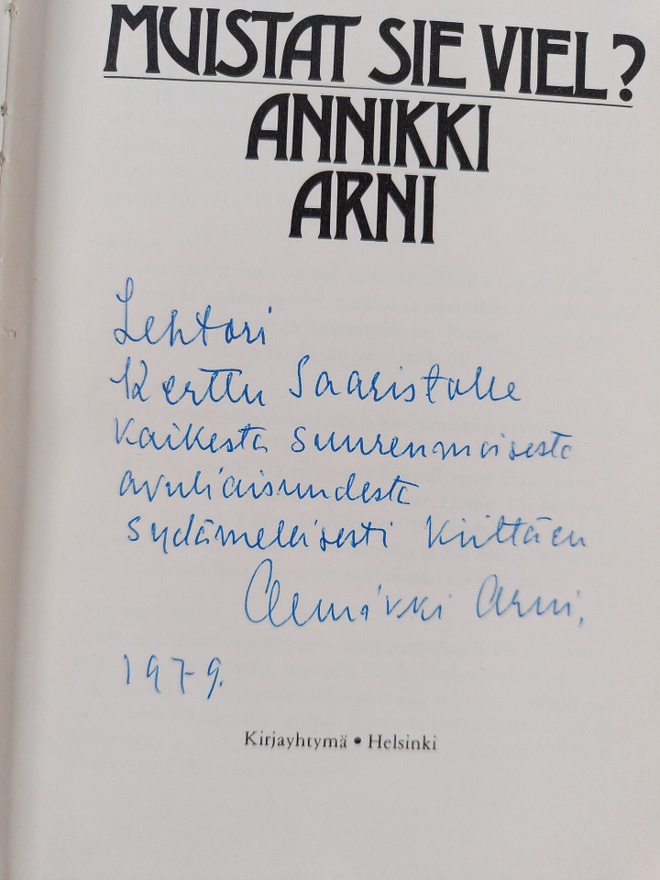 MUISTAT SIE VIEL?
ANNIKKI
ARNI
Lehtori
Kerttu Saaristolle
kaikesta suurenmoisesta
avuliaisuudesta
sydämellisesti kiittäen
Annikki Arni.
1979.
Kirjayhtymä • Helsinki